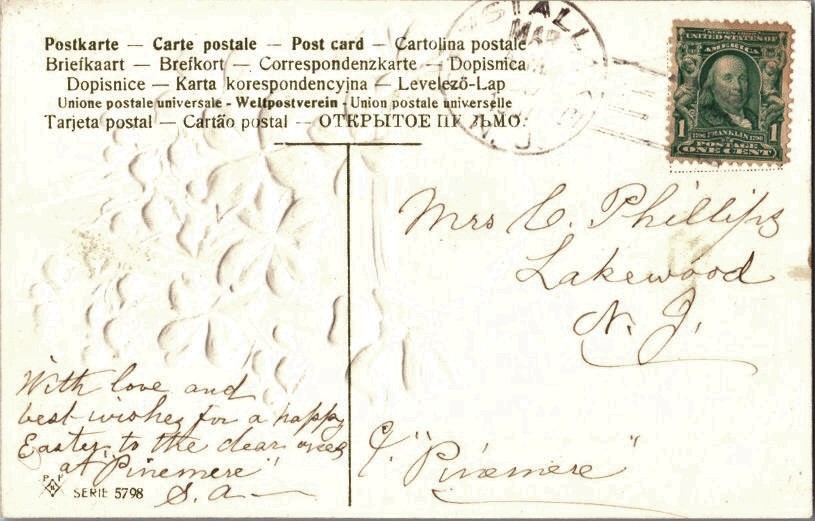 Postkarte — Carte postale — Post card — Cartolina postale
Briefkaart — Brefkort — Correspondenzkarte — Dopisnica
Dopisnice — Karta korespondencyjna — Levelező-Lap
Unione postale universale - Weltpostverein - Union postale universelle
Tarjeta postal — Cartão postal — ОТКРЫТОЕ ПИСЬМО.
MAR
N. J.
SERIES 1902
UNITED STATES OF
AMERICA
1706 FRANKLIN 1790
1 POSTAGE 1
ONE CENT
Mrs C. Phillips
Lakewood
N. J.
"Pinemere"
With love and
best wishes for a happy
Easter, to the dear ones
at "Pinemere"
S. A —
P F
SERIE 5798